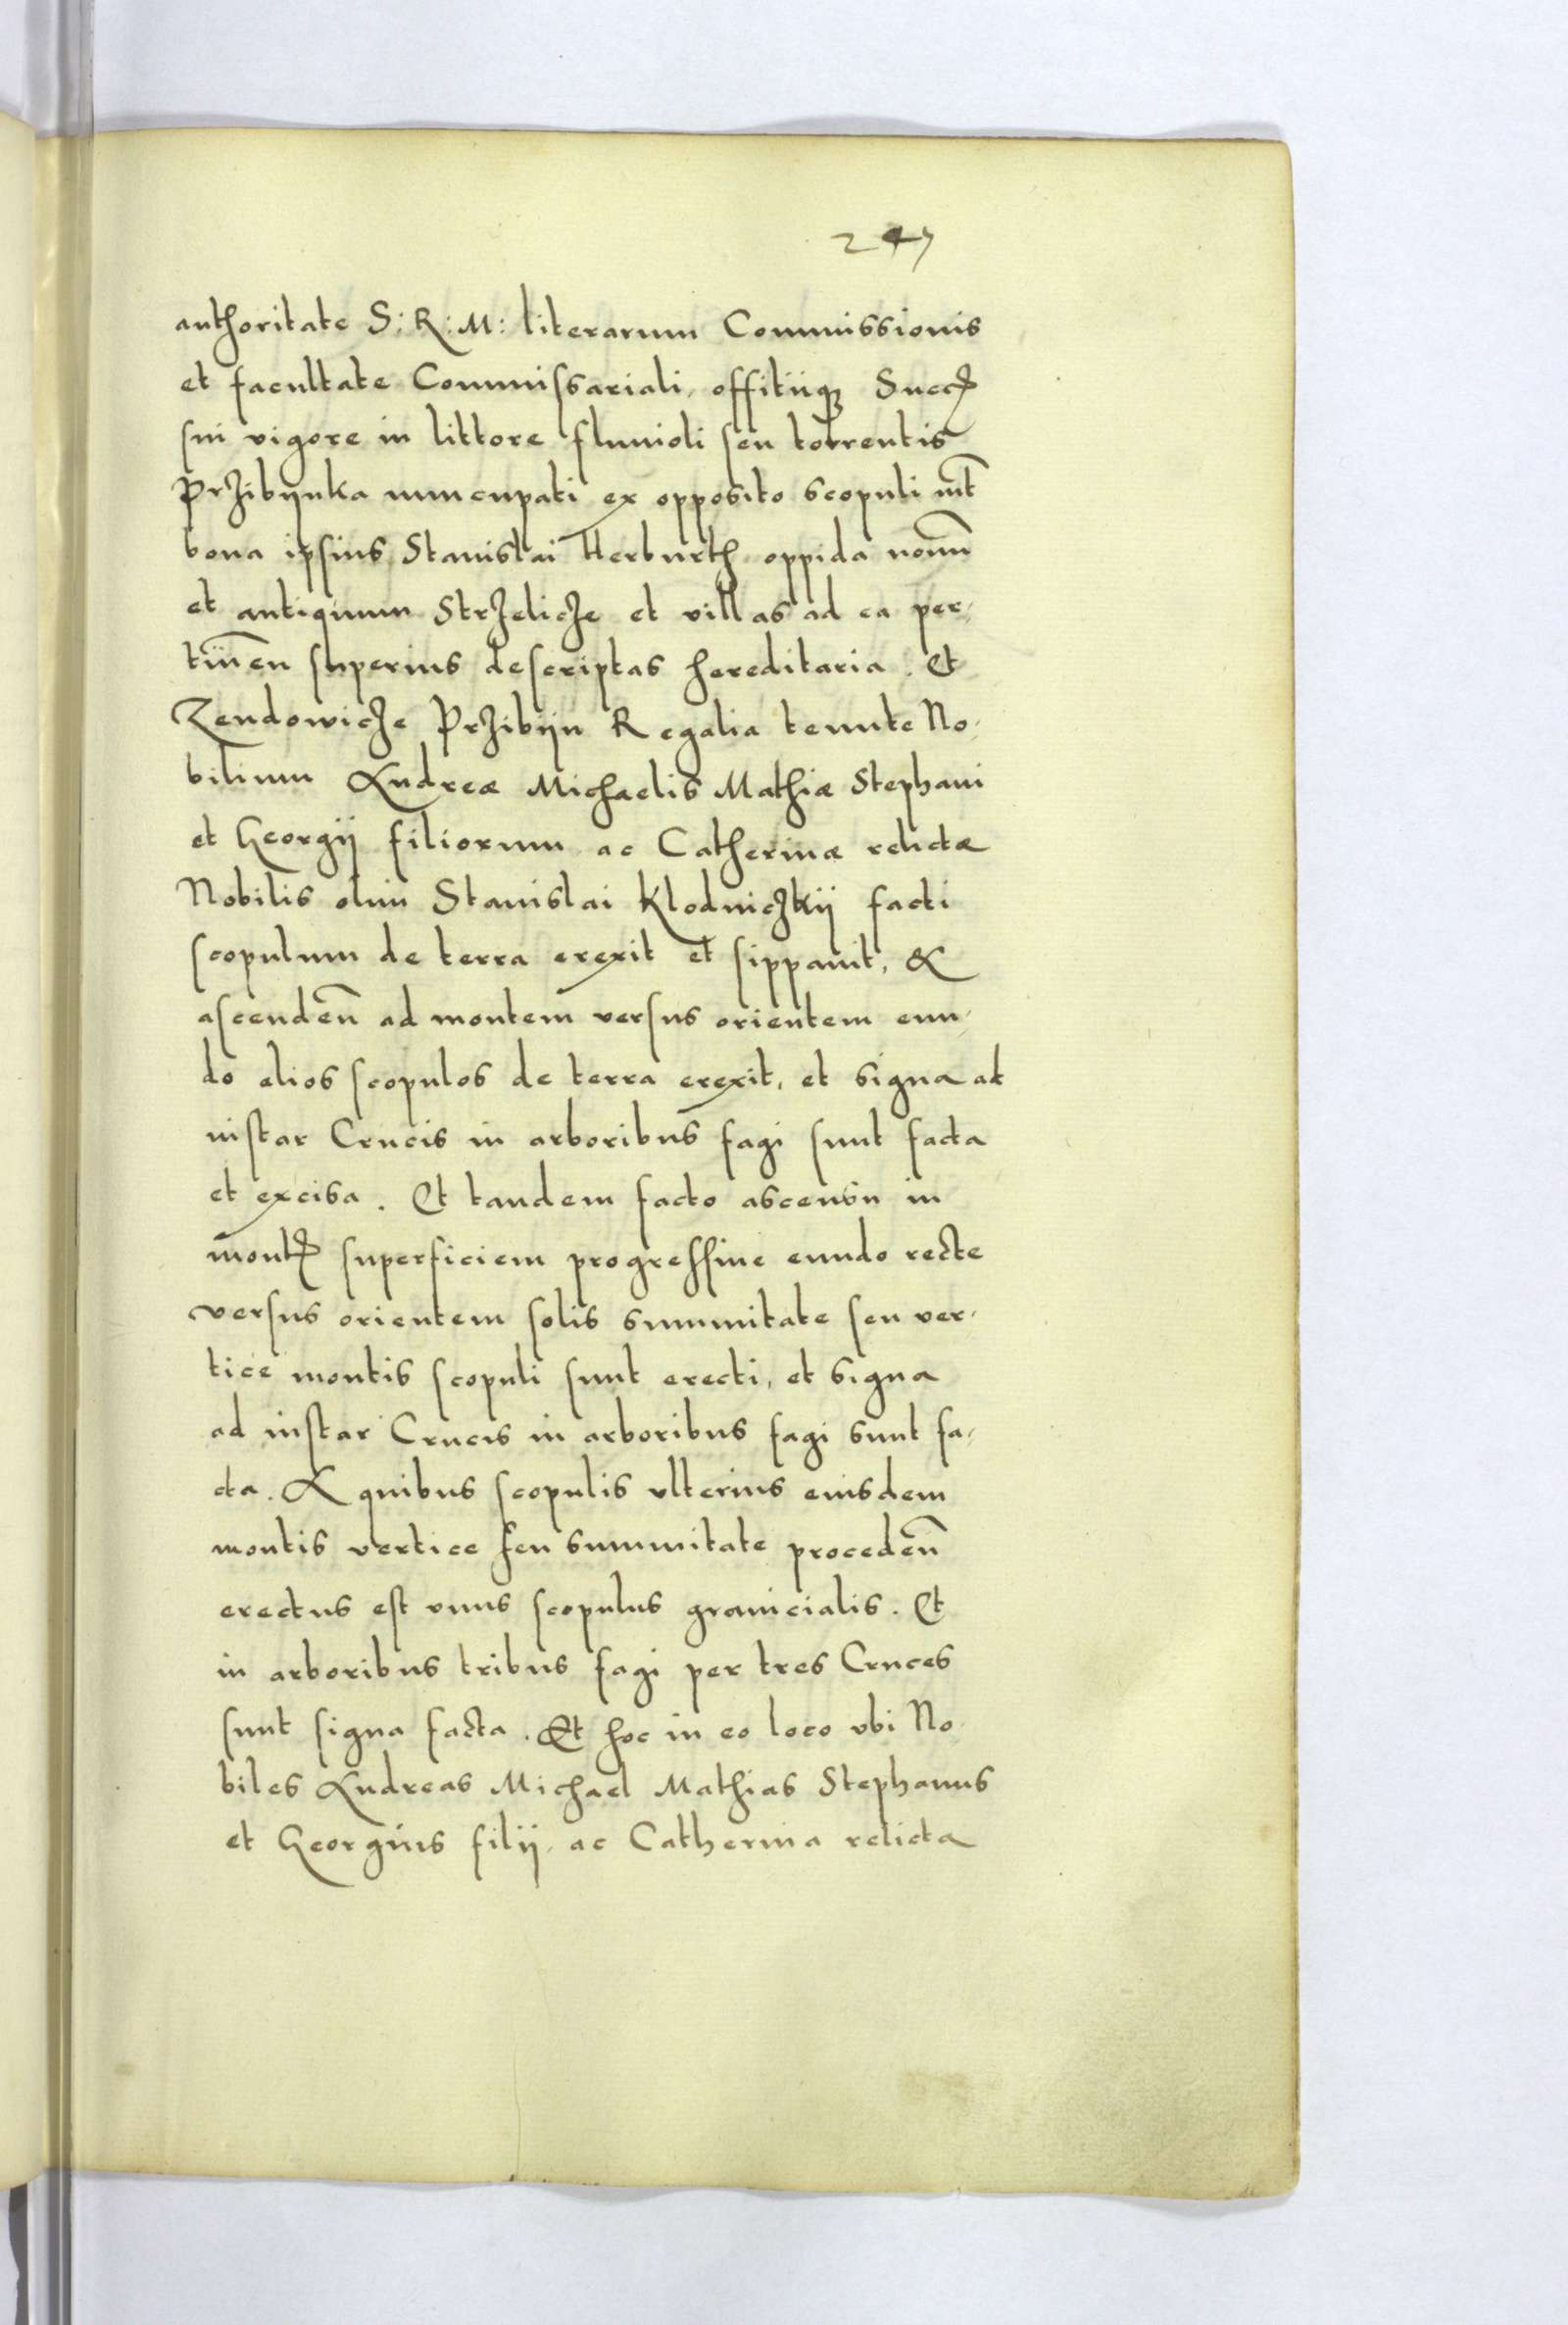 247
authoritate S: R: M: literarum Commissionis
et facultate Commissariali, offitiiq[ue] Succ[am]
sui vigore in littore fluuioli seu torrentis
Przibÿnka nuncupati ex opposito scopuli int̃
bona ipsius Stanislai Herburth oppida nouũ
et antiquum Strzelicze et villas ad ea per-
tineñ superius descriptas hereditaria. Et
Zendowicze Przibÿn Regalia tenute No-
bilium Andreæ Michaelis Mathiæ Stephani
et Georgÿ filiorum ac Catherinæ relictæ
Nobilis olim Stanislai Klodniczkÿ facti
scopulum de terra erexit et sippauit, &
ascendeñ ad montem versus orientem eun-
do alios scopulos de terra erexit, et signa ad
instar Crucis in arboribus fagi sunt facta
et excisa. Et tandem facto ascensu in
montis superficiem progressiue eundo recte
versus orientem solis summitate seu ver-
tice montis scopuli sunt erecti, et signa
ad instar Crucis in arboribus fagi sunt fa-
cta. A quibus scopulis vlterius eiusdem
montis vertice seu summitate procedeñ
erectus est vnus scopulus granicialis. Et
in arboribus tribus fagi per tres Cruces
sunt signa facta. Et hoc in eo loco vbi No-
biles Andreas Michael Mathias Stephanus
et Georgius filÿ, ac Catherina relicta